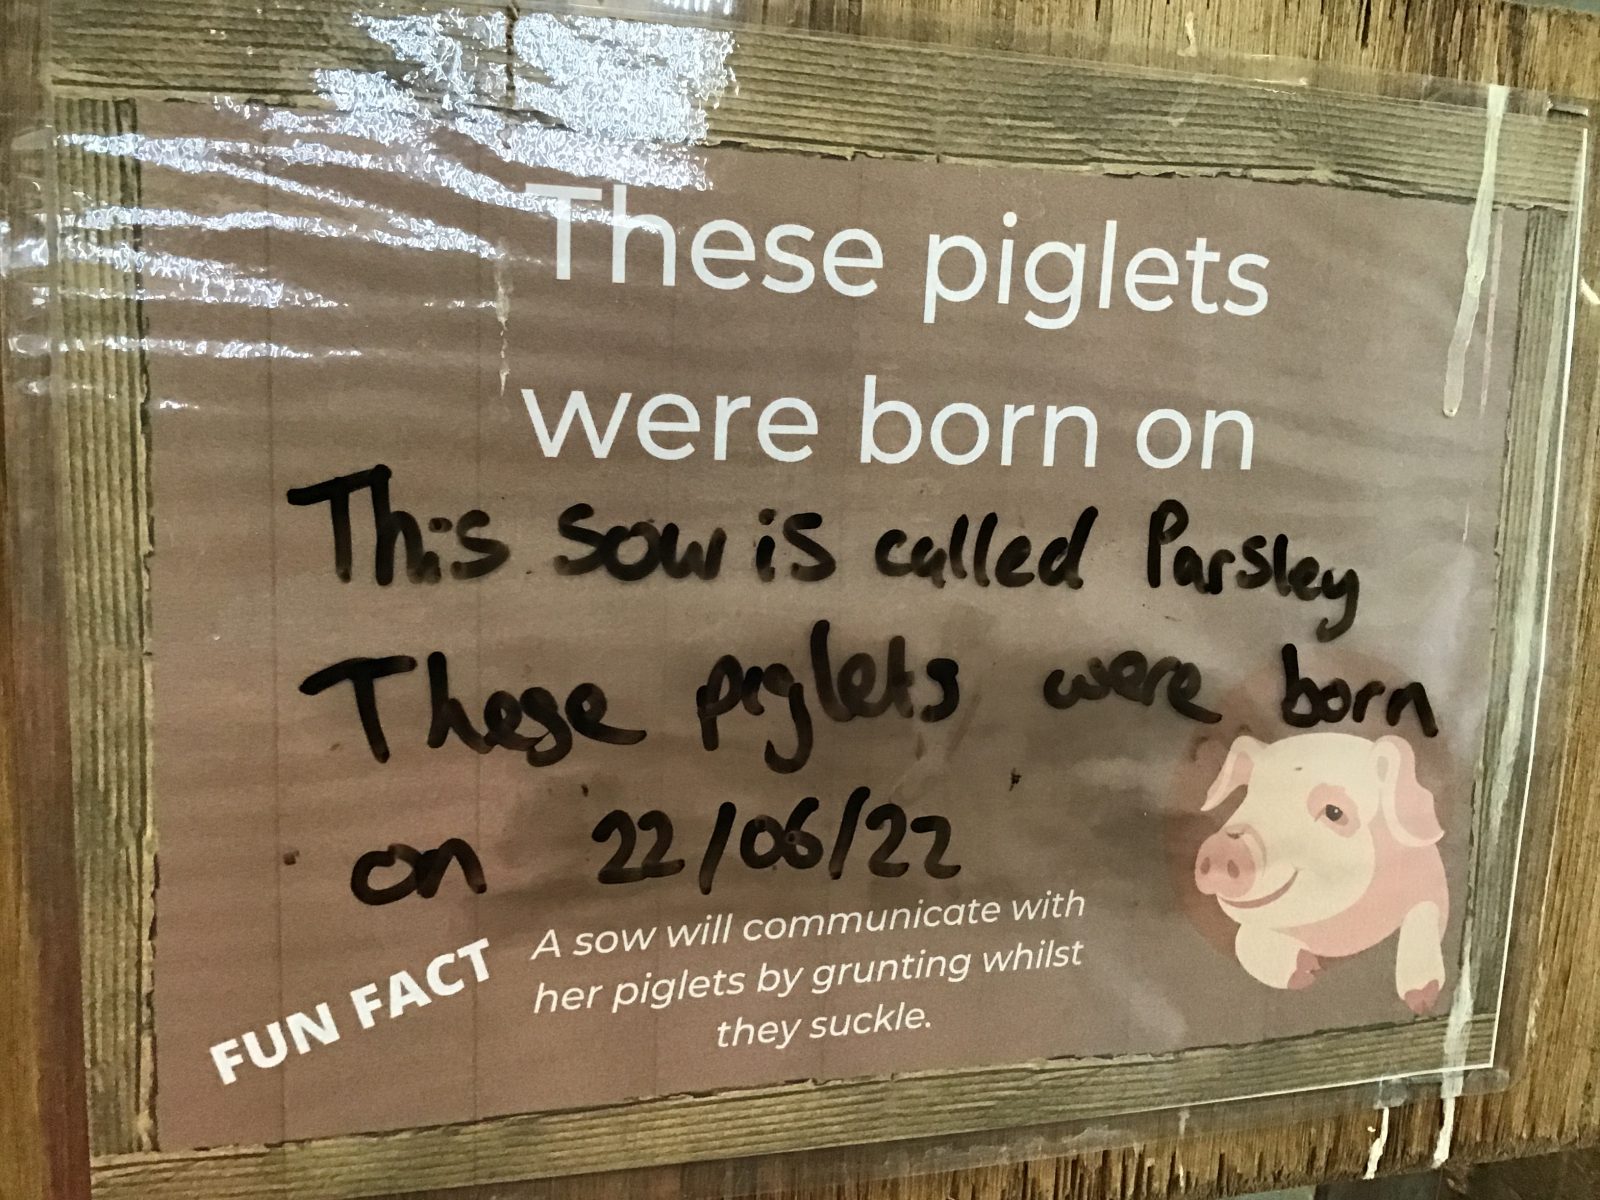 These piglets
were born on
This sow is called Parsley
These piglets were born
on 22/06/22
FUN FACT
A sow will communicate with
her piglets by grunting whilst
they suckle.